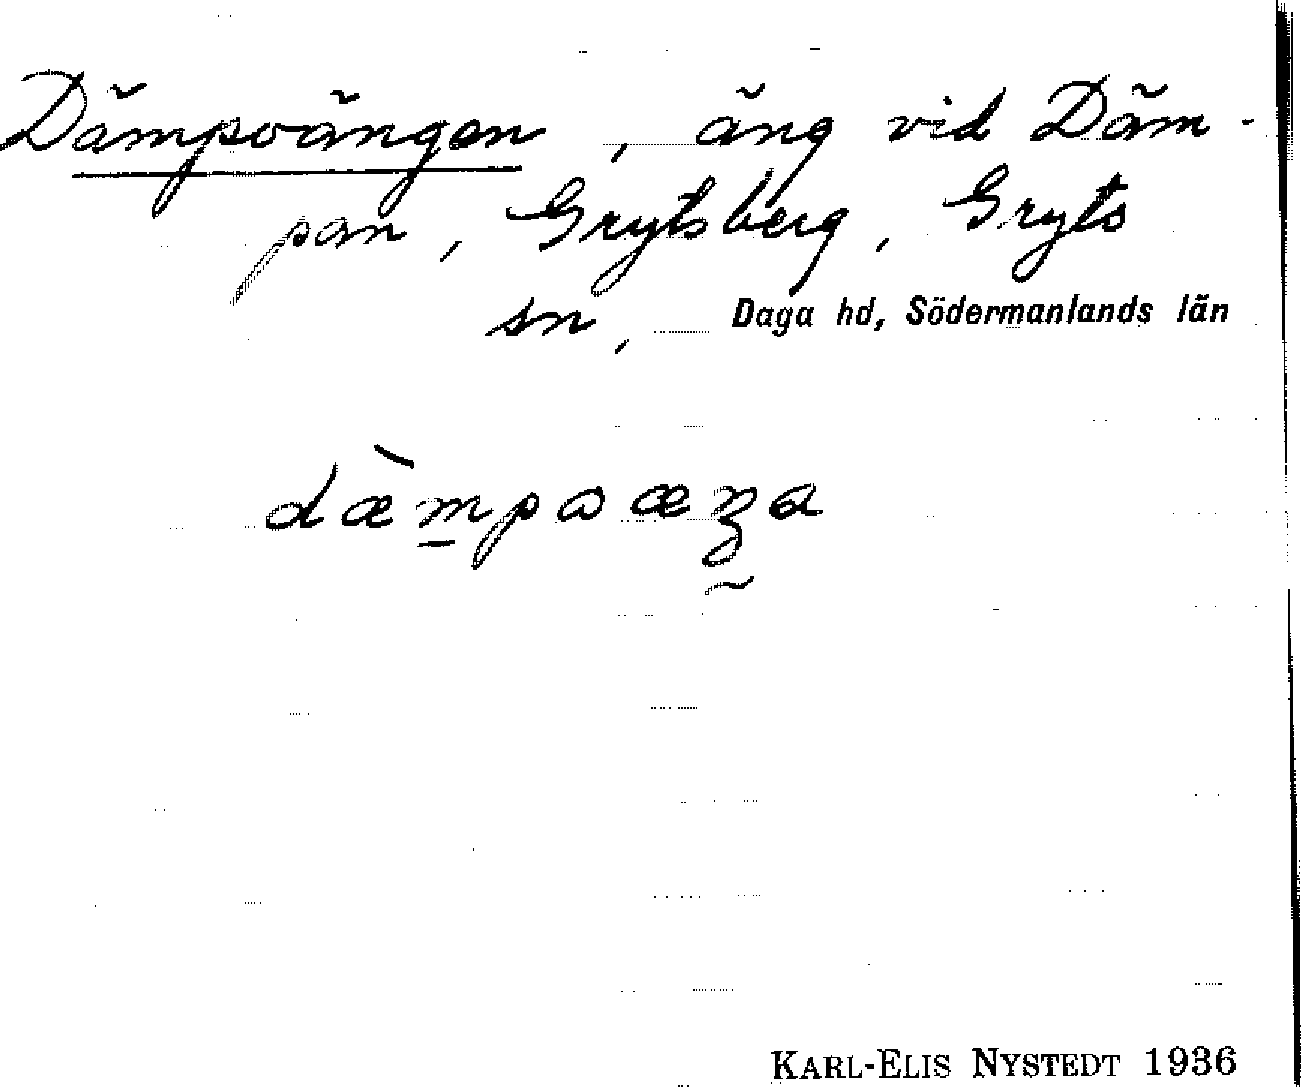 Dämpoängen, äng vid Däm-
pan, Grytsberg, Gryts
sn, Daga hd, Södermanlands län
dæ̀mpaæŋa
KARL-ELIS NYSTEDT 1936